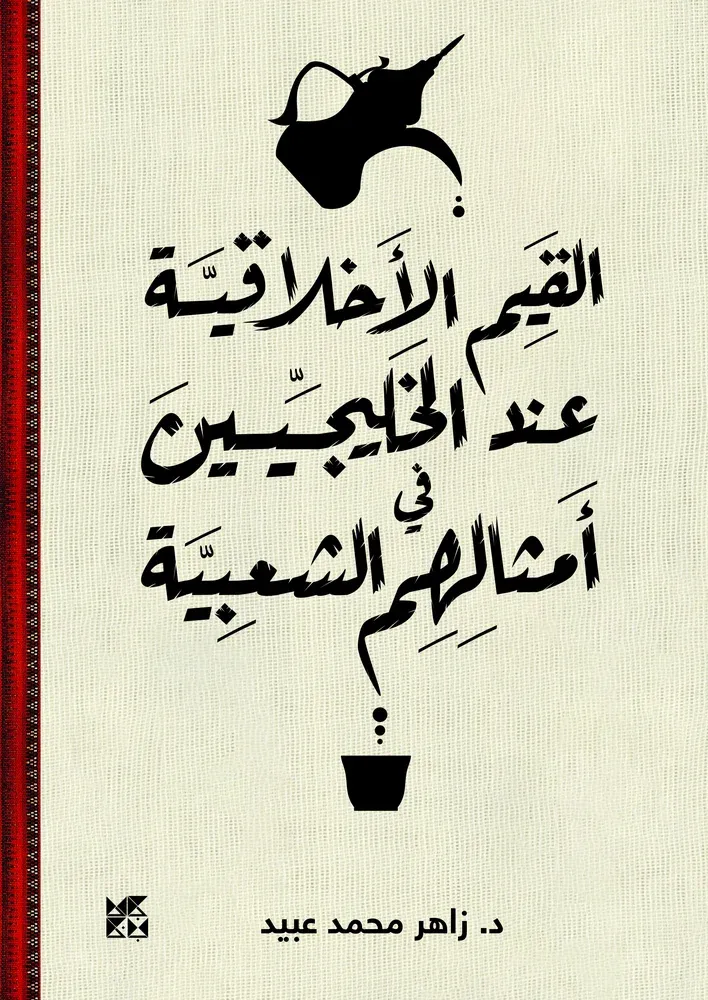 القِيَم الأَخلاقيَّة
عند الخَليجيَّين
في
أَمثالِهِم الشعبِيَّة
د. زاهر محمد عبيد